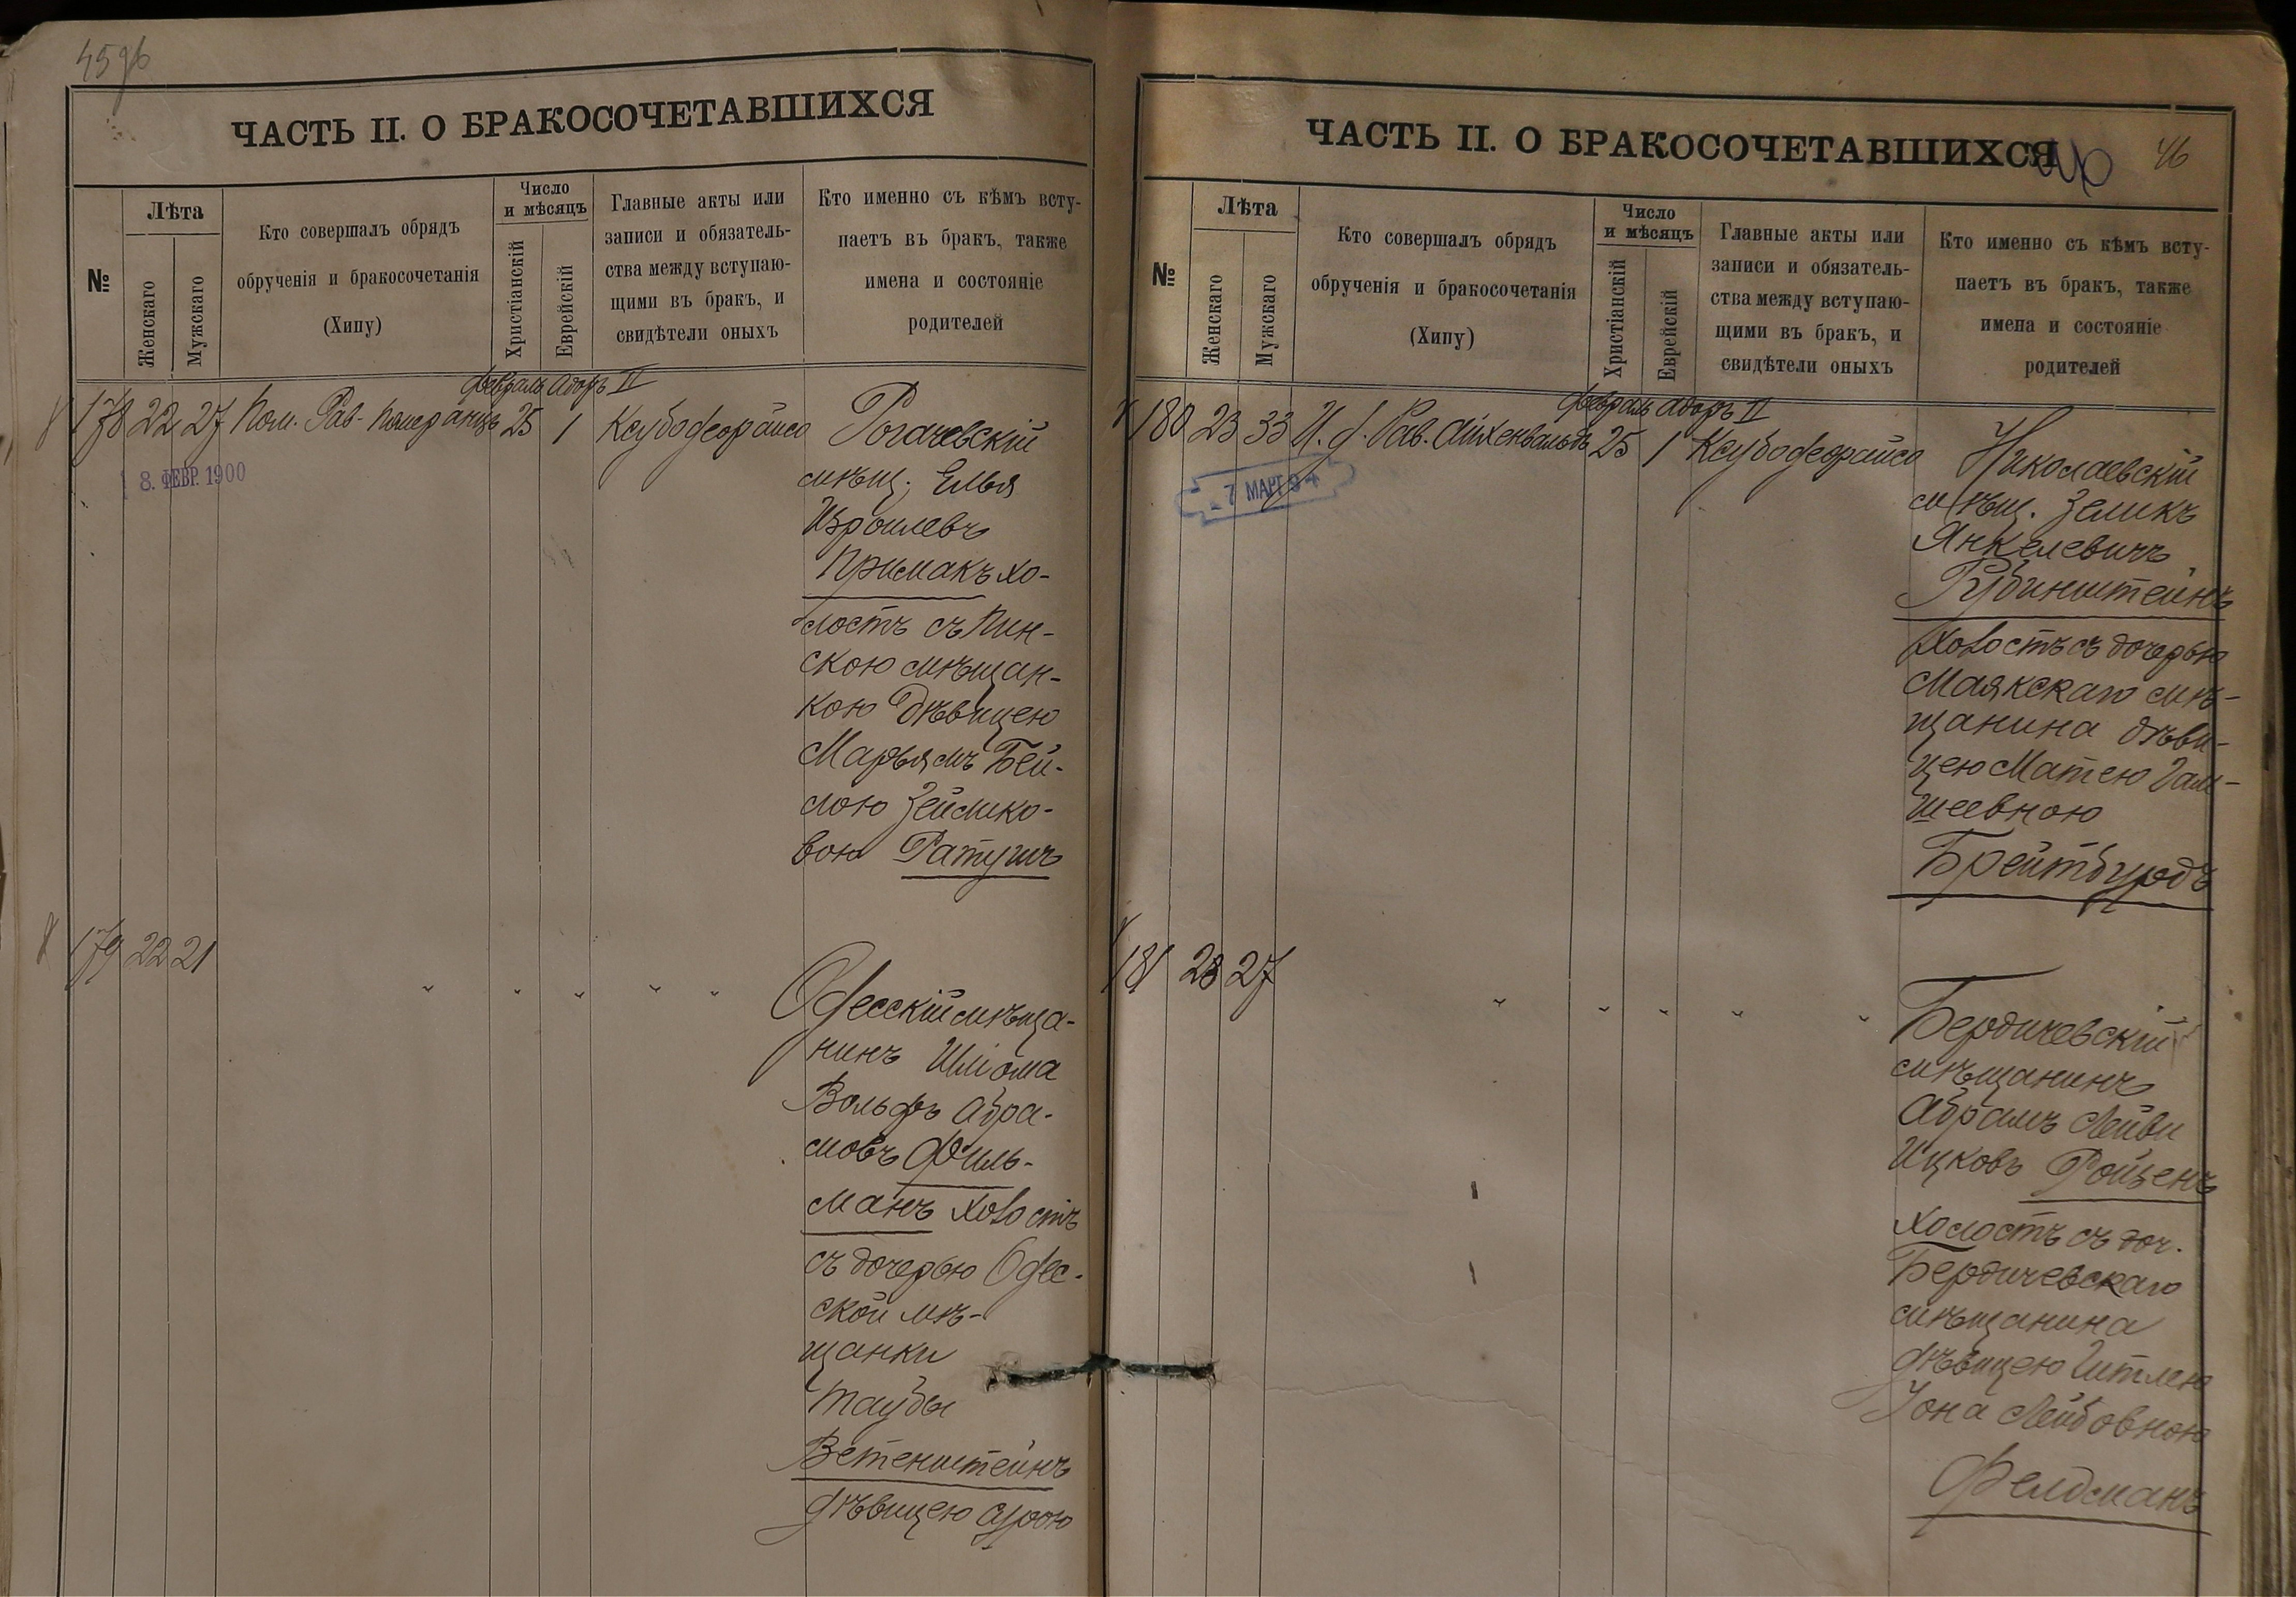 45 об
ЧАСТЬ II. О БРАКОСОЧЕТАВШИХСЯ
№
Лѣта
Женскаго
Мужскаго
Кто совершалъ обрядъ
обрученія и бракосочетанія
(Хипу)
Число
и мѣсяцъ
Христіанскій
Еврейскій
Главные акты или
записи и обязатель-
ства между вступаю-
щими въ бракъ, и
свидѣтели оныхъ
Кто именно съ кѣмъ всту-
паетъ въ бракъ, также
имена и состояніе
родителей
Февраль Адаръ II
178 22 27 Пом. Рав. Померанцъ 25 1 Ксубо деорайсо
8. ФЕВР. 1900
Рогачевскій
мѣщ. Елья
Изроилевъ
Примакъ хо-
лостъ съ Пин-
скою мѣщан-
кою дѣвицею
Марьямъ Бей-
лою Зейлико-
вою Ратушъ
179 22 21
Одесскій мѣща-
нинъ Шліома
Вольфъ Абра-
мовъ Филь-
манъ холостъ
съ дочерью Одес-
ской мѣ-
щанки
Таубы
Ветенштейнъ
дѣвицею Сурою
ЧАСТЬ II. О БРАКОСОЧЕТАВШИХСЯ
46
№
Лѣта
Женскаго
Мужскаго
Кто совершалъ обрядъ
обрученія и бракосочетанія
(Хипу)
Число
и мѣсяцъ
Христіанскій
Еврейскій
Главные акты или
записи и обязатель-
ства между вступаю-
щими въ бракъ, и
свидѣтели оныхъ
Кто именно съ кѣмъ всту-
паетъ въ бракъ, также
имена и состояніе
родителей
Февраль Адаръ II
180 23 33 И. д. Рав. Айхенвальдъ 25 1 Ксубо деорайсо
7 МАРТ 94
Николаевскій
мѣщ. Зеликъ
Янкелевичъ
Рубинштейнъ
холостъ съ дочерью
Маякскаго мѣ-
щанина дѣви-
цею Матею Гам-
шеевною
Брейтбурдъ
181 28 27
Бердичевскій
мѣщанинъ
Абрамъ Лейви
Ицковъ Ройзенъ
холостъ съ доч.
Бердичевскаго
мѣщанина
дѣвицею Гитлею
Іона Лейбовною
Фелдманъ